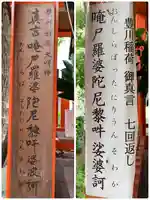 豊川稲荷 御真言 七回返し
唵尸羅婆陀尼黎吽娑婆訶
おんしらばったにりうんそわか
真言唵尸羅婆陀尼黎吽娑婆訶